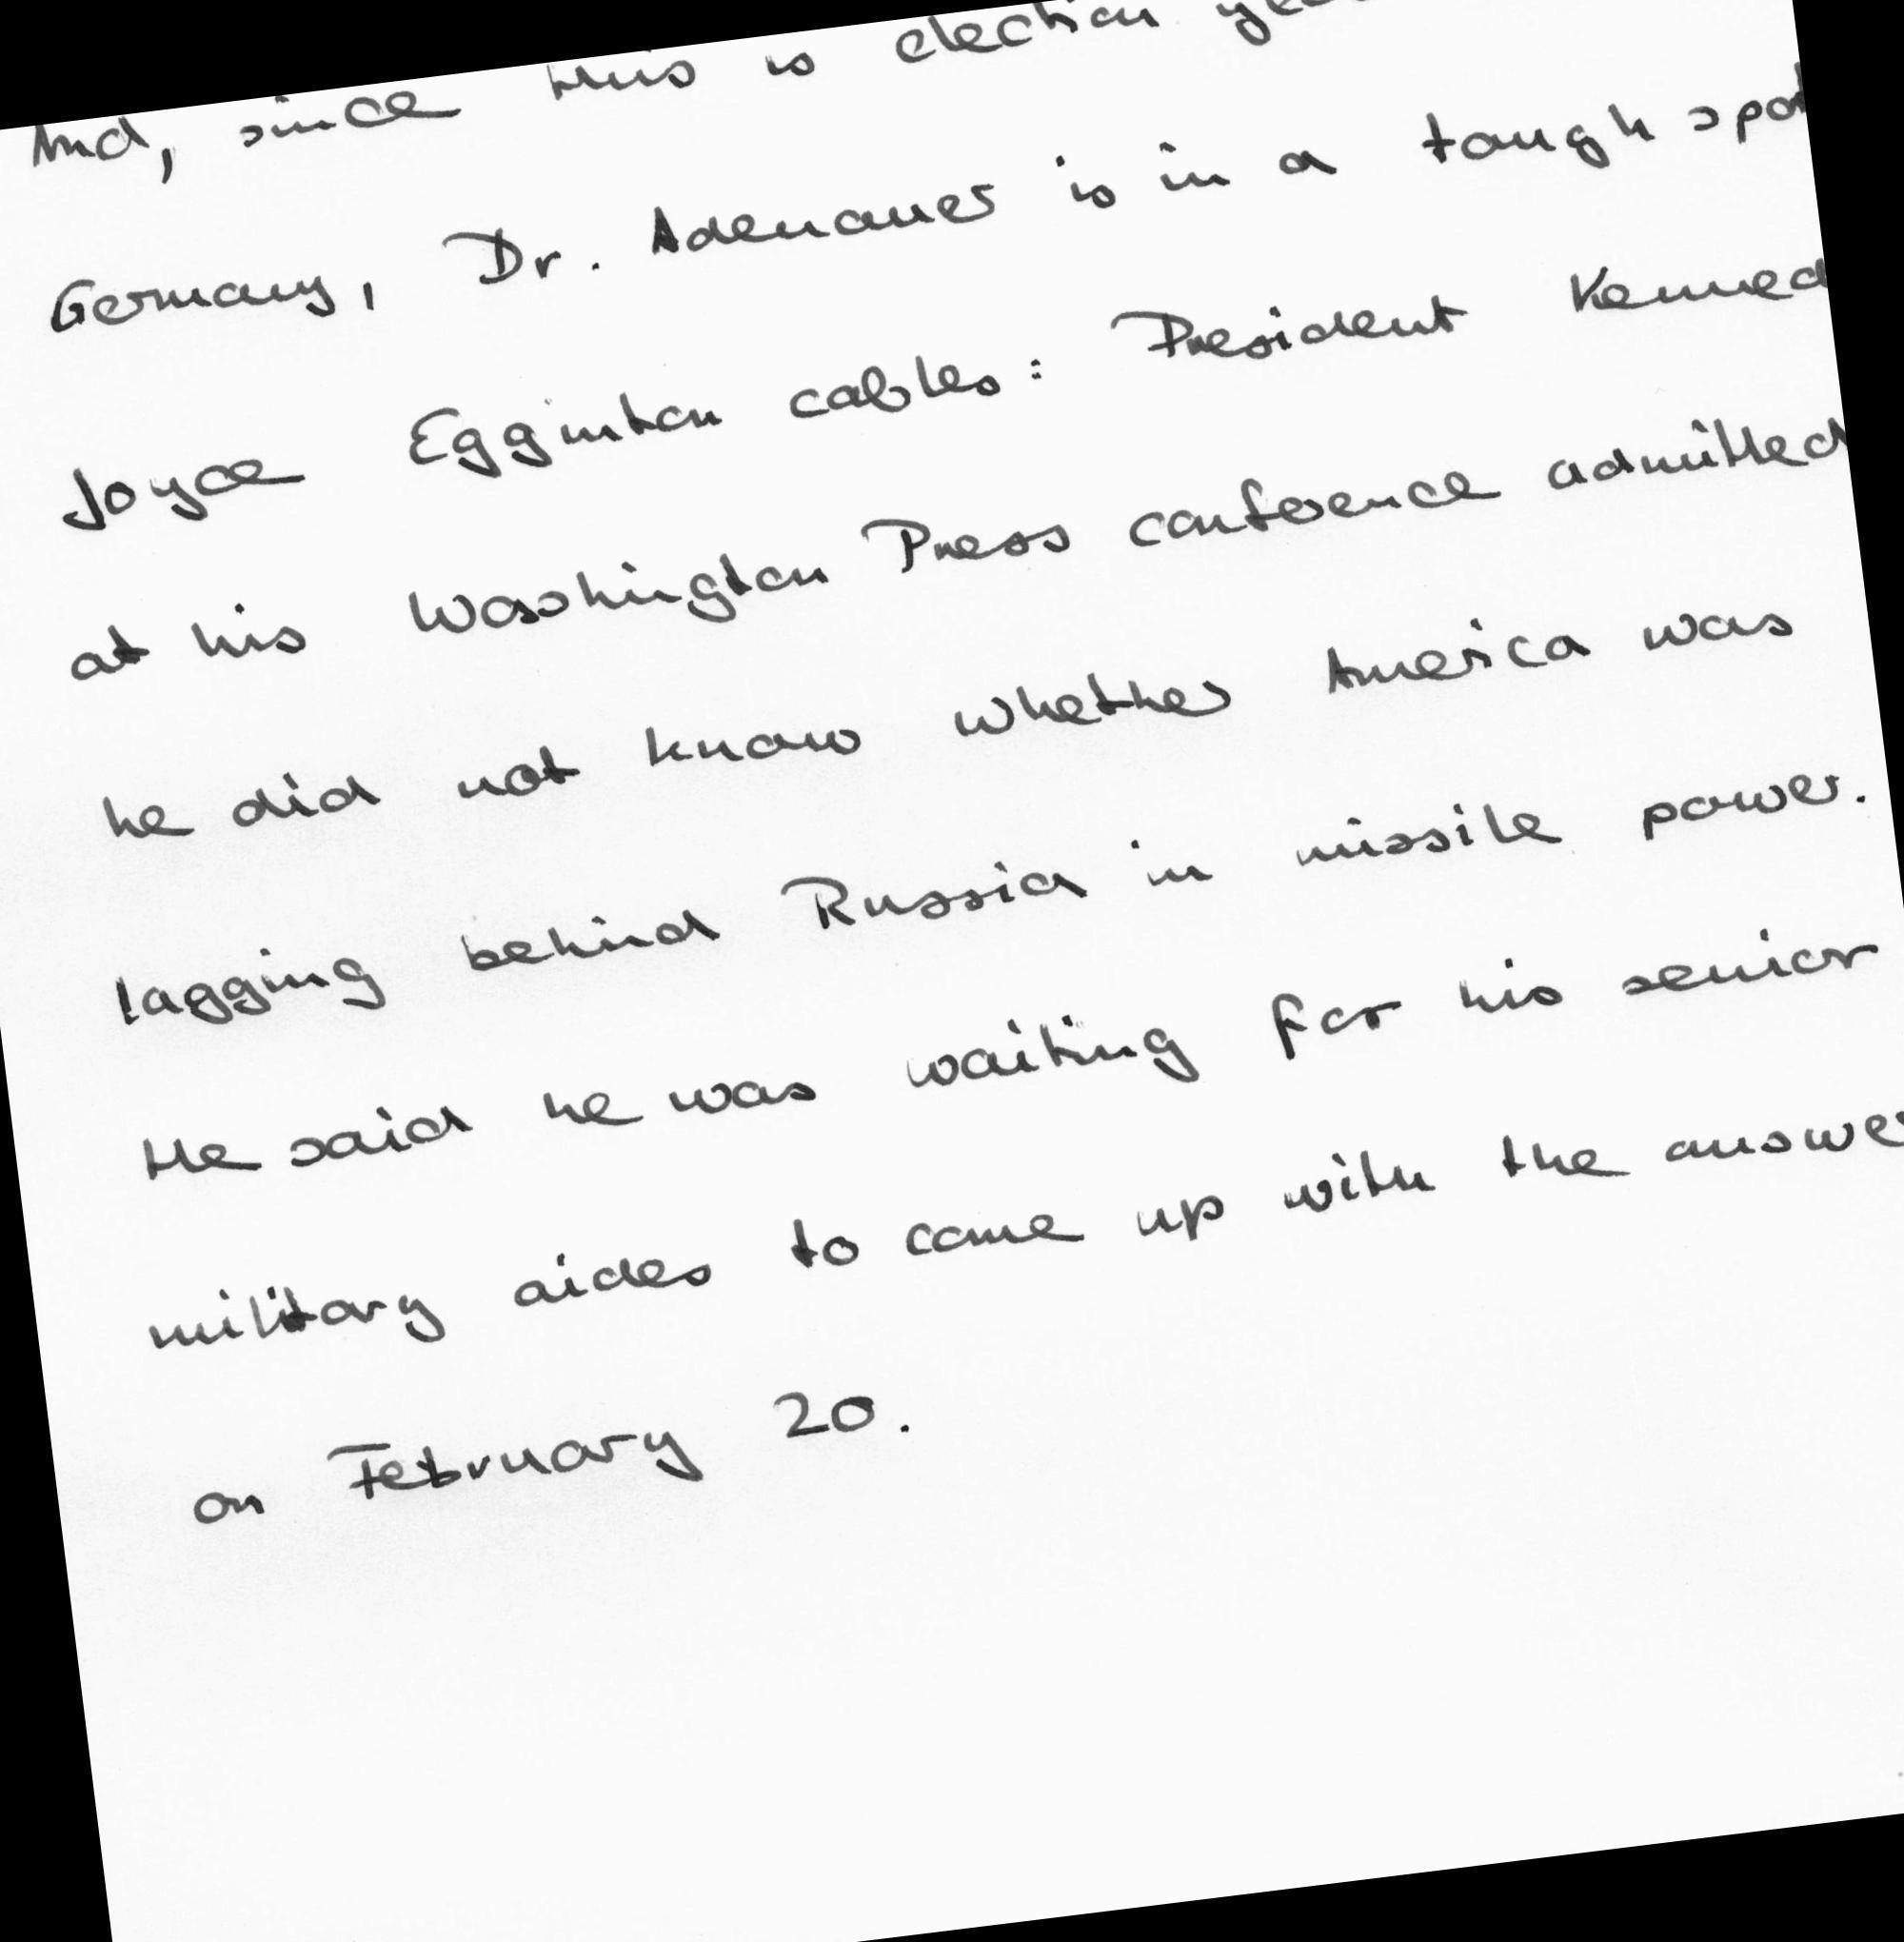 And, since this is election
Germany, Dr. Adenauer is in a tough spot
Joyce Egginton cables: President Kenned
at his Washington Press conference admitted
he did not know whether America was
lagging behind Russia in missile power.
He said he was waiting for his senior
military aides to come up with the answe
on February 20.